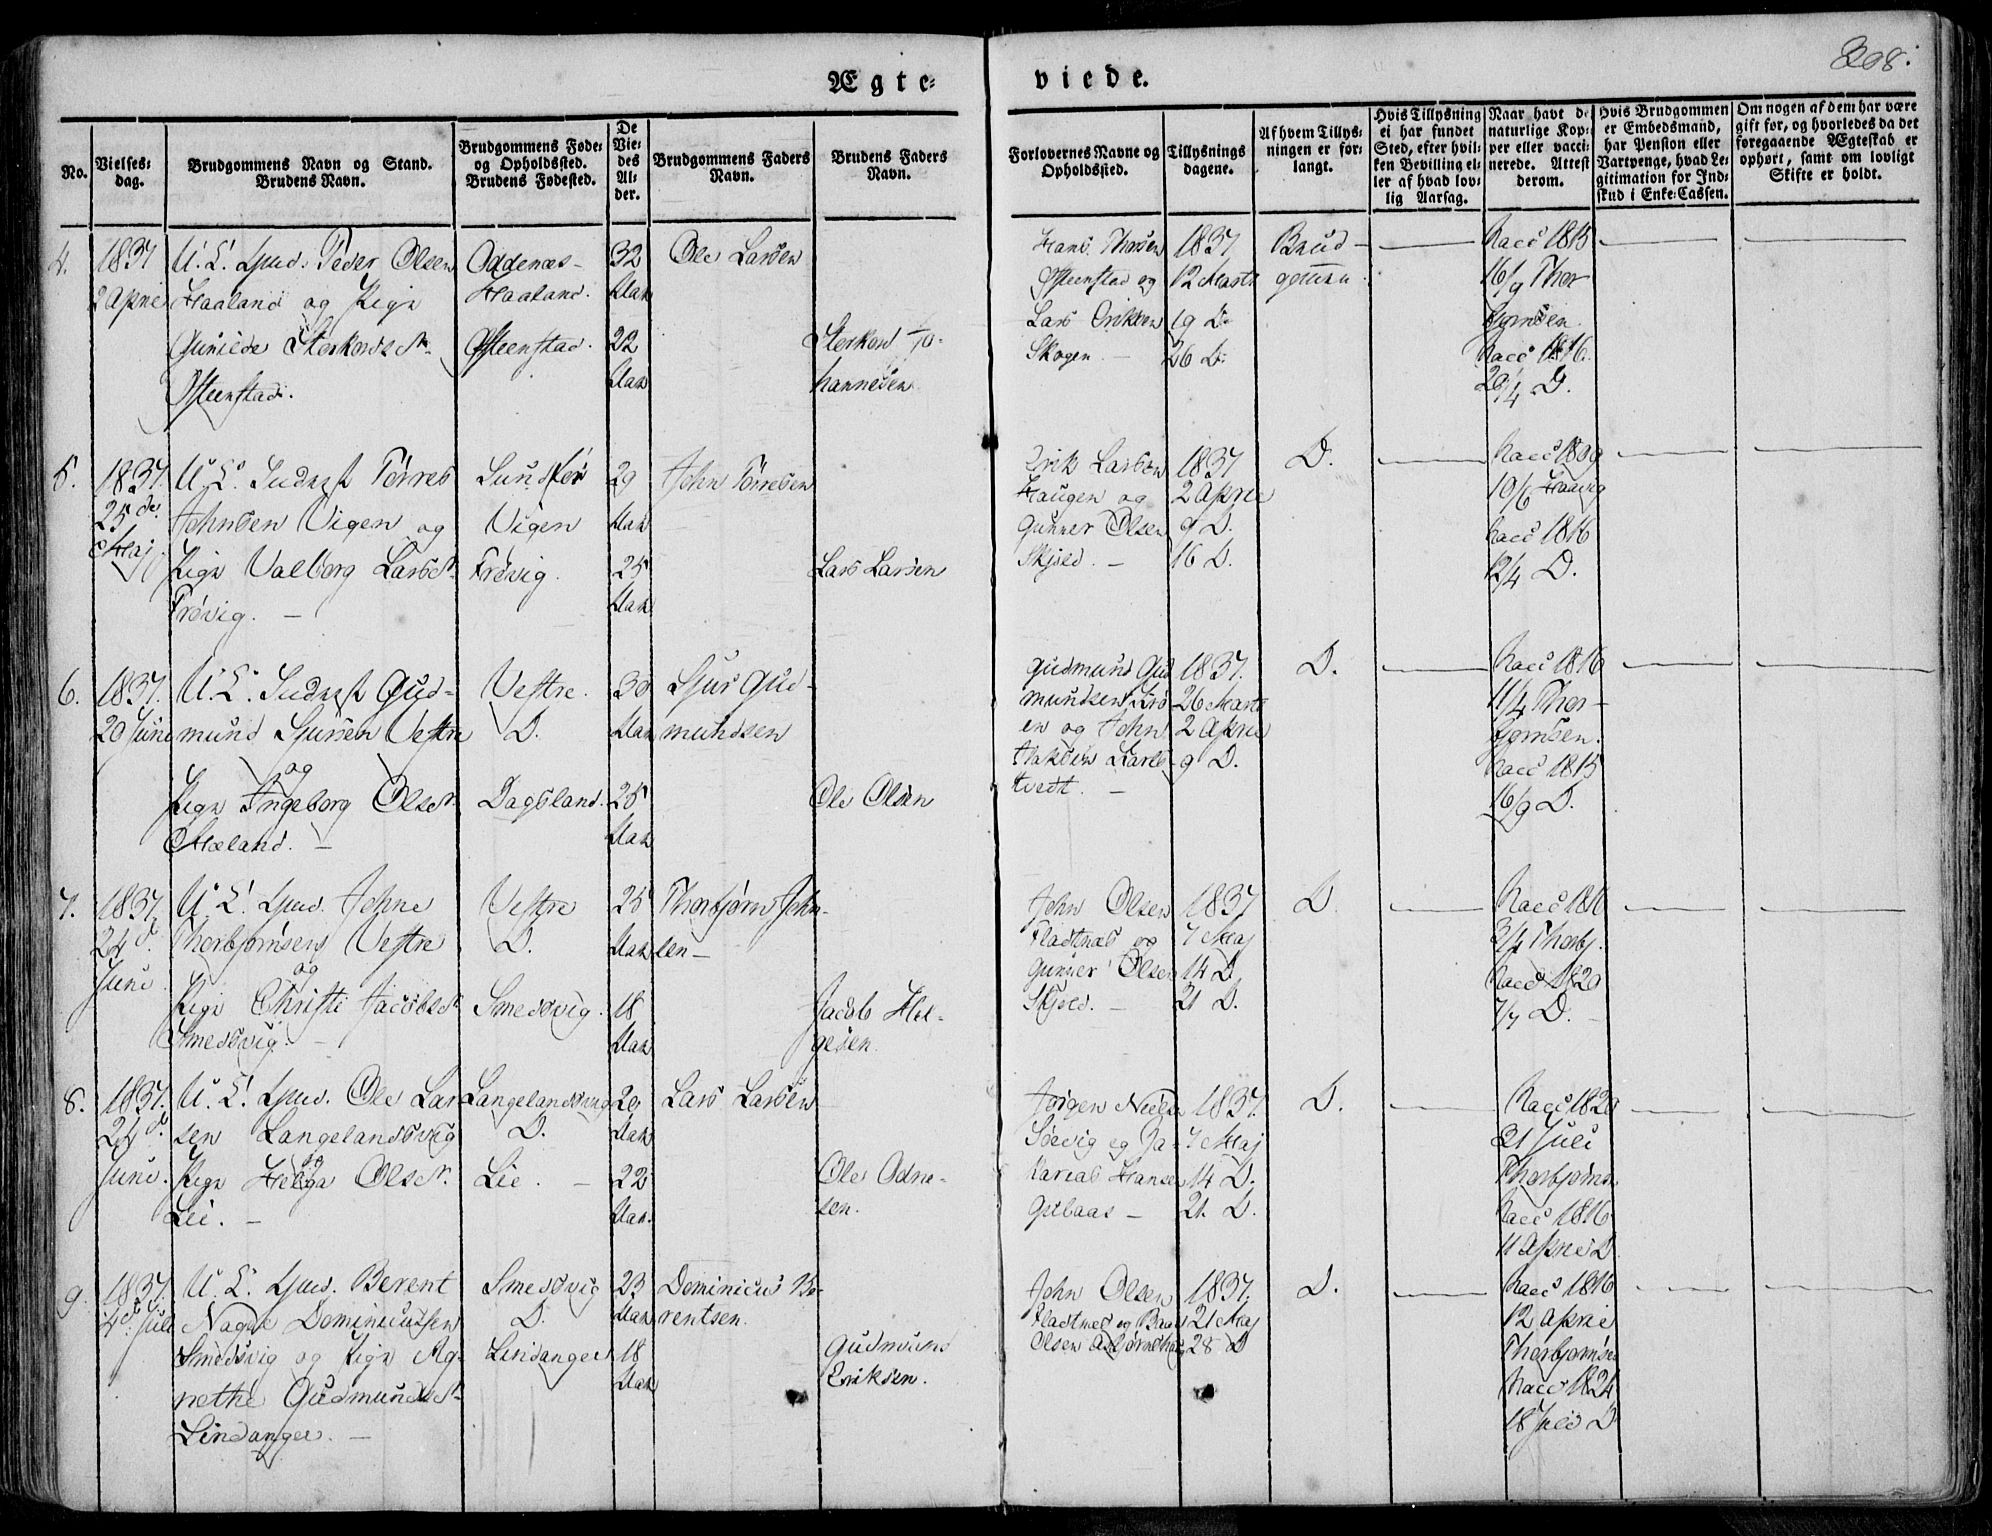 308.
Ægte=
viede.
No.
Vielses=
dag.
Brudgommens Navn og Stand.
Brudens Navn.
Brudgommens Føde=
og Opholdssted.
Brudens Fødested.
De
Vie=
des
Al=
der.
Brudgommens Faders
Navn.
Brudens Faders
Navn.
Forlovernes Navne og
Opholdssted.
Tillysnings
dagene.
Af hvem Tillys=
ningen er for=
langt.
Hvis Tillysning
ei har fundet
Sted, efter hvil=
ken Bevilling el=
ler af hvad lov=
lig Aarsag.
Naar havt de
naturlige Kop=
per eller vacci=
nerede. Attest
derom.
Hvis Brudgommen
er Embedsmand,
har Pension eller
Vartpenge, hvad Le=
gitimation for Ind=
skud i Enke=Cassen.
Om nogen af dem har være
gift før, og hvorledes da det
foregaaende Ægteskab er
ophørt, samt om lovligt
Skifte er holdt.
4.
1837
2 April
U. C. Gmd. Peder Olsen
Haaland og Pige
Gunilde Storkorsdr.
Østeenstad.
Oddenæs-
Haaland.
Østeenstad.
32
Aar
22
Aar
Ole Larsen
Storkor Jo-
hannesen
Hans Thorsen
Østeenstad og
Lars Eriksen
Skogen. -
1837
12 Marts
19 D.
26 D.
Brud-
gomen
Vacc 1815
16/9 Thor
bjørnsen.
Vacc 1816.
20/4 D.
5.
1837
25de
Maj
U. C. Inderst Tørres
Johnsen Vigen og
Pige Valborg Larsdr.
Frøvig. -
Sundfør
Vigen
Frøvig.
29
Aar
25
Aar
John Tørresen
Lars Larsen
Erik Larsen
Haugen og
Gunner Olsen
Skjold. -
1837
2 April
9 D.
16 D.
D.
Vacc 1809
10/6 Haavig
Vacc 1816
12/4 D.
6.
1837.
20 Juni
U. C. Inderst Gud-
mund Sjursen Vestre
og
Pige Ingeborg Olsdr.
Mæland. -
Vestre.
D.
Dagsland.
30
Aar
25
Aar
Sjur Gud-
mundsen
Ole Olsen
Gudmund Gud
mundsen
en og John
1837.
26 Marts
2 April
9 D.
D.
Vacc 1816
11/4 Thor-
bjørnsen.
Vacc 1815
16/9 D.
7.
1837
24d.
Juni
U. C. Gmd. Johne
Thorbjørnsen Vestre
og
Pige Christi Jacobsdr.
Smedsvig. -
Vestre
D.
Smedsvig.
25
Aar
18
Aar
Thorbjørn John-
sen -
Jacob Hel-
gesen.
John Olsen
Fladtnæs og
Gunner Olsen
Skjold. -
1837
7 Maj
14 D.
21 D.
D.
Vacc 1816
3/4 Thorbj.
Vacc 1820
7/7 D.
8.
1837.
24d.
Juni.
U. C. Gmd. Ole Lar
sen Langelandsvig
og
Pige Helga Olsdr.
Lie. -
Langelandsvig
D.
Lie. -
29
Aar
22
Aar.
Lars Larsen
Ole Odne-
sen.
Jørgen Niels
Sørvig og Za-
karias Hansen
1837.
7 Maj
14 D.
21. D.
D.
Vacc 1820
21 Juli
Thorbjørns.
Vacc 1816
11 April D
9.
1837.
4d. Juli
U. C. Gmd. Berent
Nagel Dominicussen
Smedsvig og Pige Ag-
nethe Gudmundsdr.
Lindanger. -
Smedsvig
D.
Lindanger
23
Aar
18
Aar
Dominicus Be-
rentsen.
Gudmund
Eriksen.
John Olsen
Fladtnæs og
Olsen
1837.
21 Maj
28 D
D.
Vacc 1816
12 April
Thorbjørnsen
Vacc 1824
18 Juli D